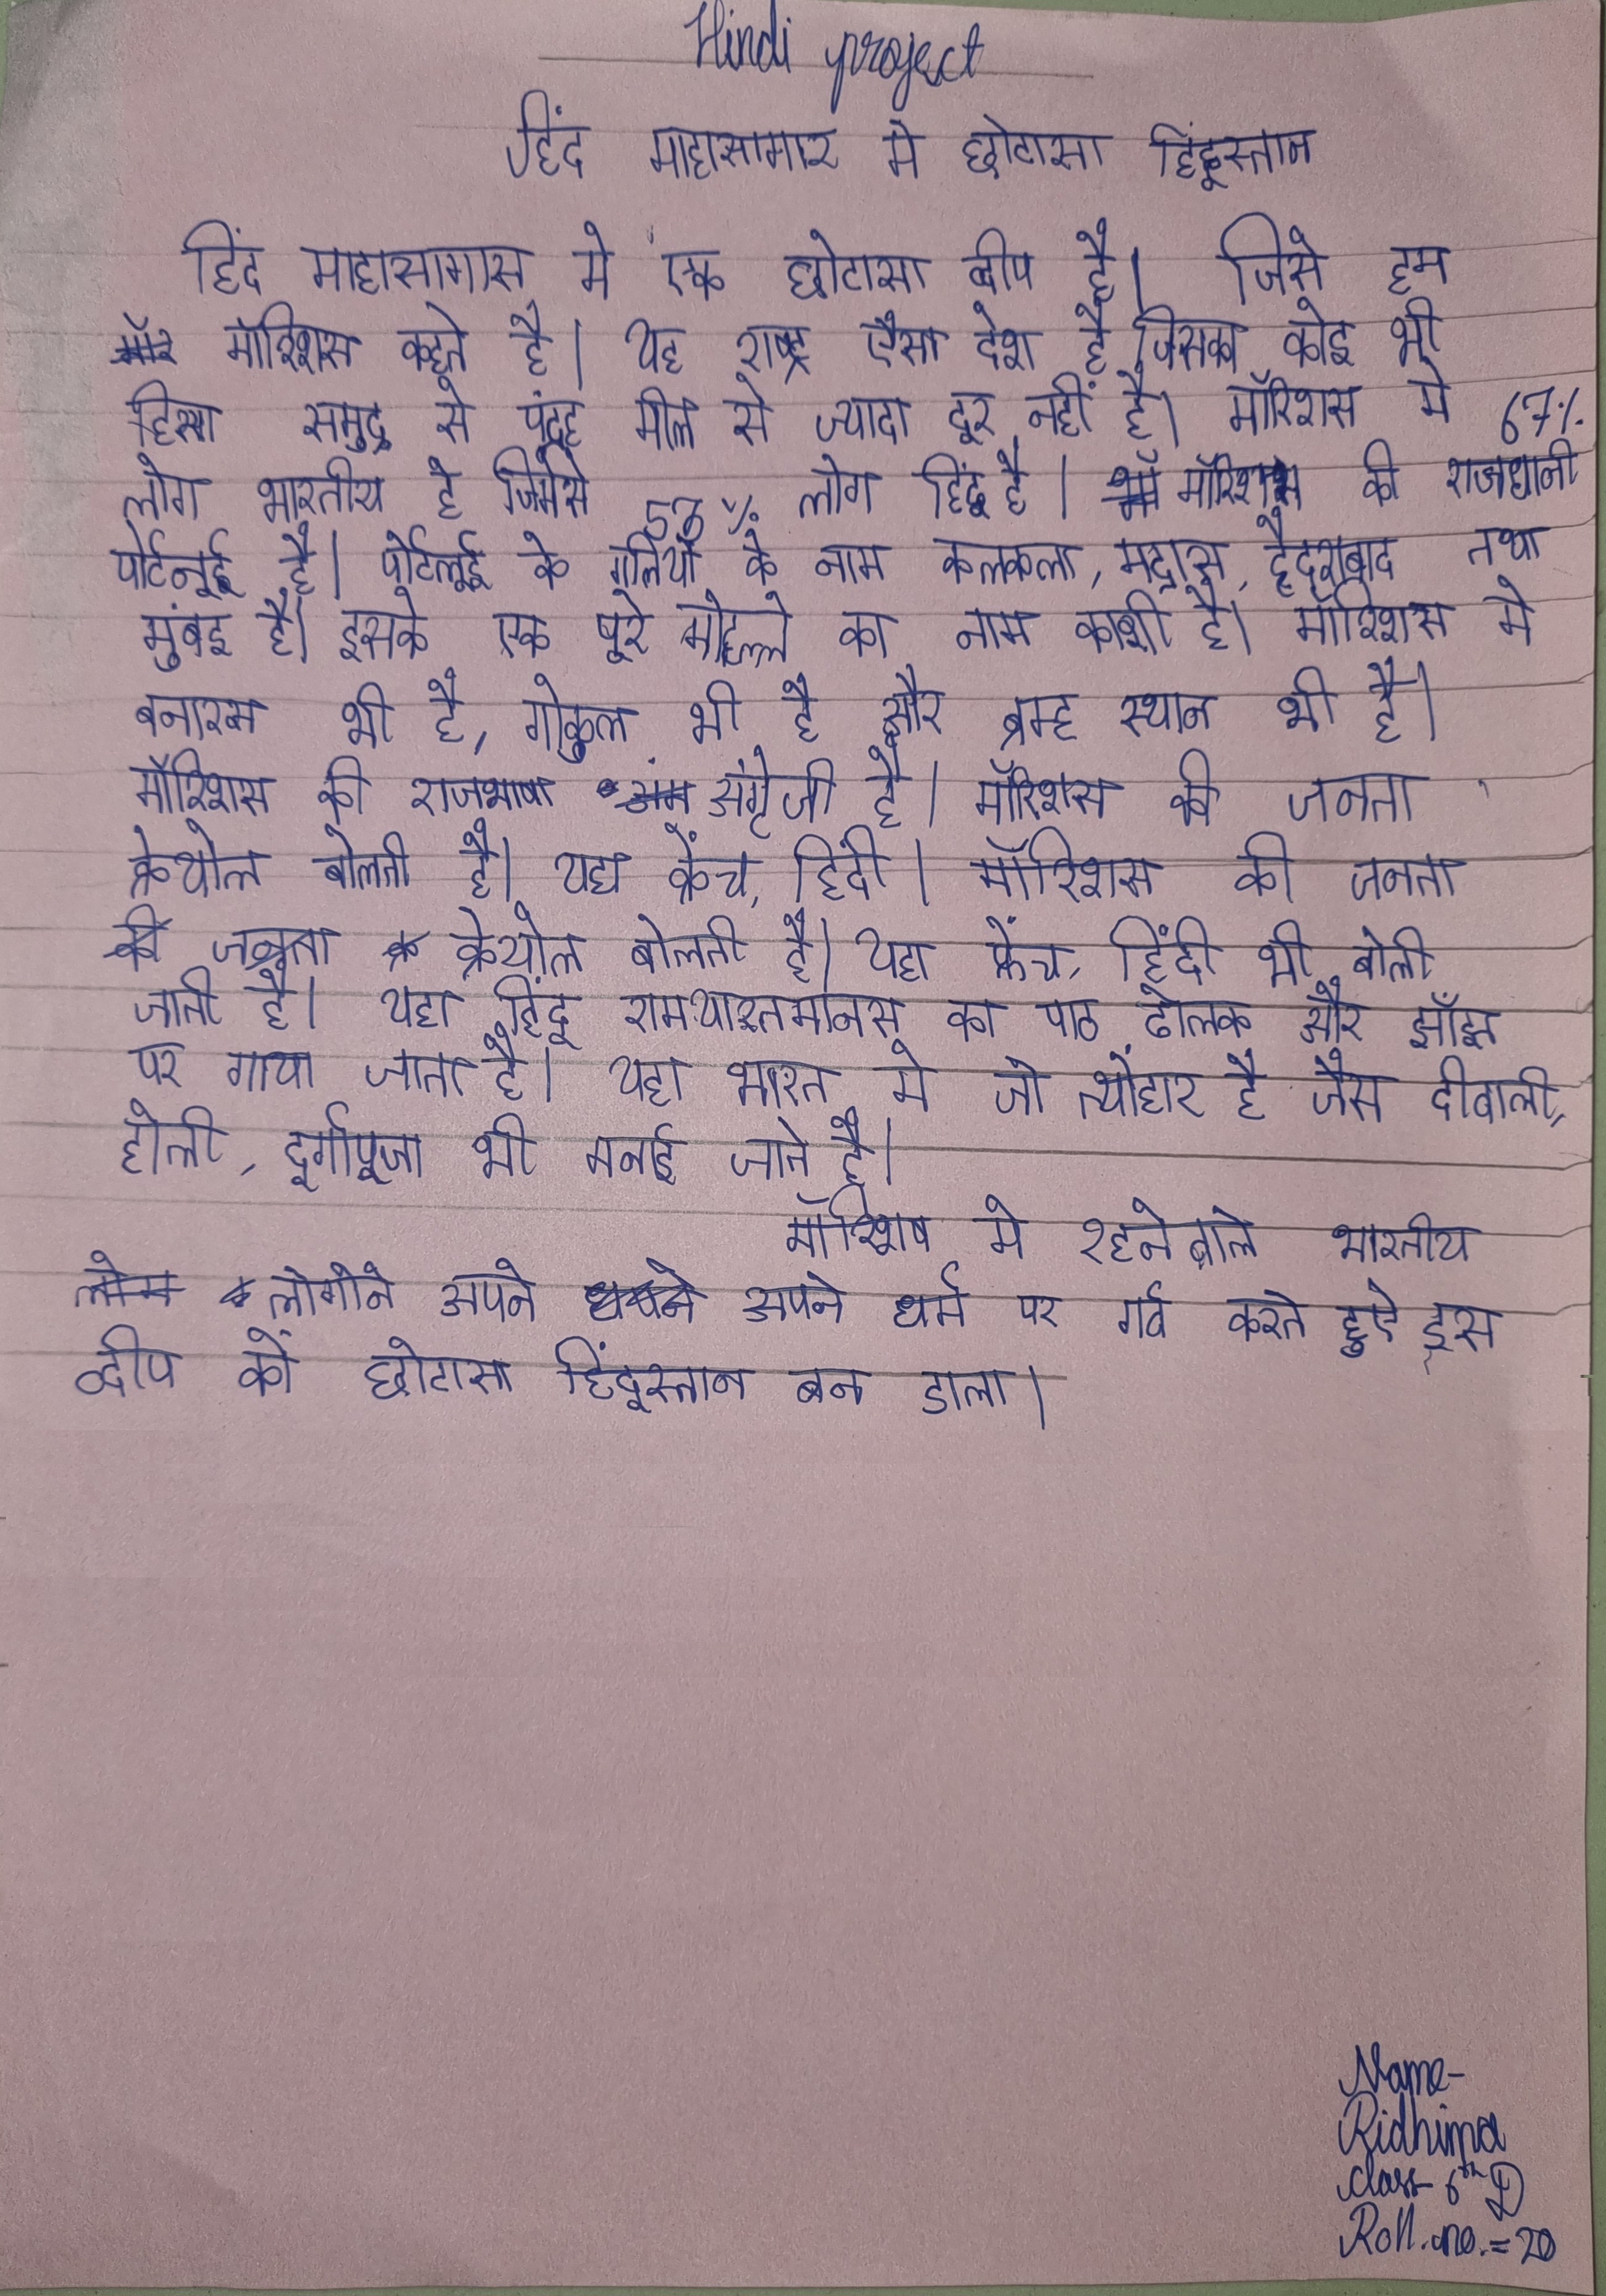 Hindi project
हिंद माहासागार मे छोटासा हिंदूस्तान
हिंद माहासागास मे एक छोटासा व्दीप है। जिसे हम
मॉरिशस कहते है। यह राष्ट्र ऐसा देश है जिसका कोइ भी
हिस्सा समुद्र से पंद्रह मील से ज्यादा दूर नहीं है। मॉरिशस मे 67%
लोग भारतीय है जिमेसे 53% लोग हिंदू है। मॉरिशस की राजधानी
पोर्टलूई है। पोर्टलूई के गलियों के नाम कलकला, मद्रास, हैदराबाद तथा
मुंबइ है। इसके एक पूरे मोहल्ले का नाम काशी है। मॉरिशस मे
बनारस भी है, गोकुल भी है और ब्रम्ह स्थान भी है।
मॉरिशस की राजभाषा अंग्रेजी है। मॉरिशस की जनता
क्रेयोल बोलती है। यहा फ्रेंच, हिंदी। मॉरिशस की जनता
की जनता क्रेयोल बोलती है। यहा फ्रेंच, हिंदी भी बोली
जाती है। यहा हिंदू रामचारतमानस का पाठ ढोलक और झाँझ
पर गाया जाता है। यहा भारत मे जो त्योंहार है जैसे दीवाली,
होली, दूर्गापूजा भी मनाई जाते है।
मॉरिशष मे रहनेवाले भारतीय
लोगोने अपने अपने धर्म पर गर्व करते हुऐ इस
व्दीप कों छोटासा हिंदूस्तान बन डाला।
Name-
Ridhima
class- 6th D
Roll.no.=20